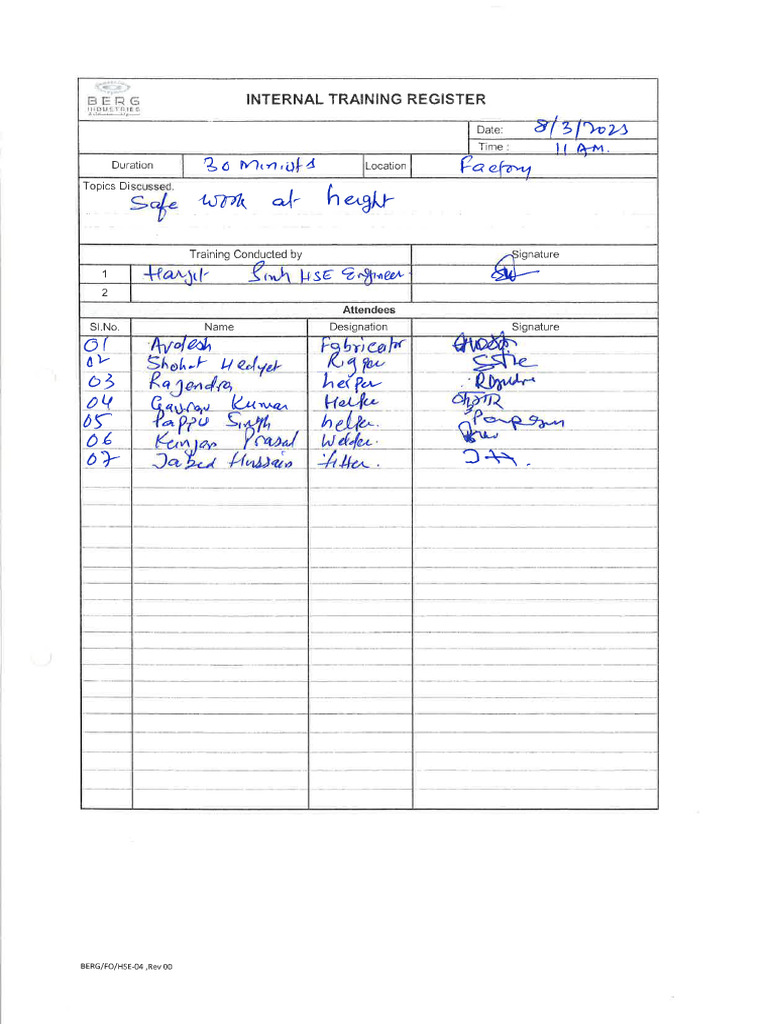 BERG
INDUSTRIES
INTERNAL TRAINING REGISTER
Date: 8/3/2023
Time : 11 AM.
Duration 30 Miniuts Location Factory
Topics Discussed.
Safe work at height
Training Conducted by Signature
1 Harjit Sinh HSE Engineer
2
Attendees
Sl.No. Name Designation Signature
01 Avdesh Fabricator
02 Shohat Hedyet Rigger
03 Rajendra helper Rajendra
04 Gaurav Kumar Helper
05 Pappu Singh helper.
06 Kunjan Prasad Welder.
07 Jabed Hussain fitter. JH.
BERG/FO/HSE-04 ,Rev 00